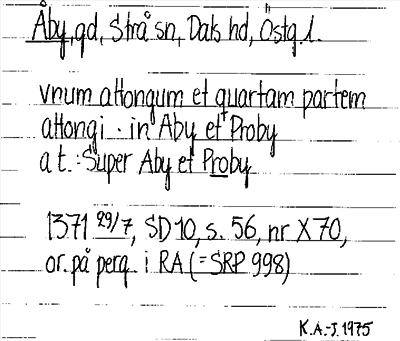 Åby, gd, Strå sn, Dals hd, Östg. l.
vnum attongum et quartam partem
attongi · in Aby et Proby
a t. : Super Aby et Proby
1371 29/7, SD 10, s. 56, nr X 70,
or. på perg. i RA (= SRP 998)
K.A.-J. 1975